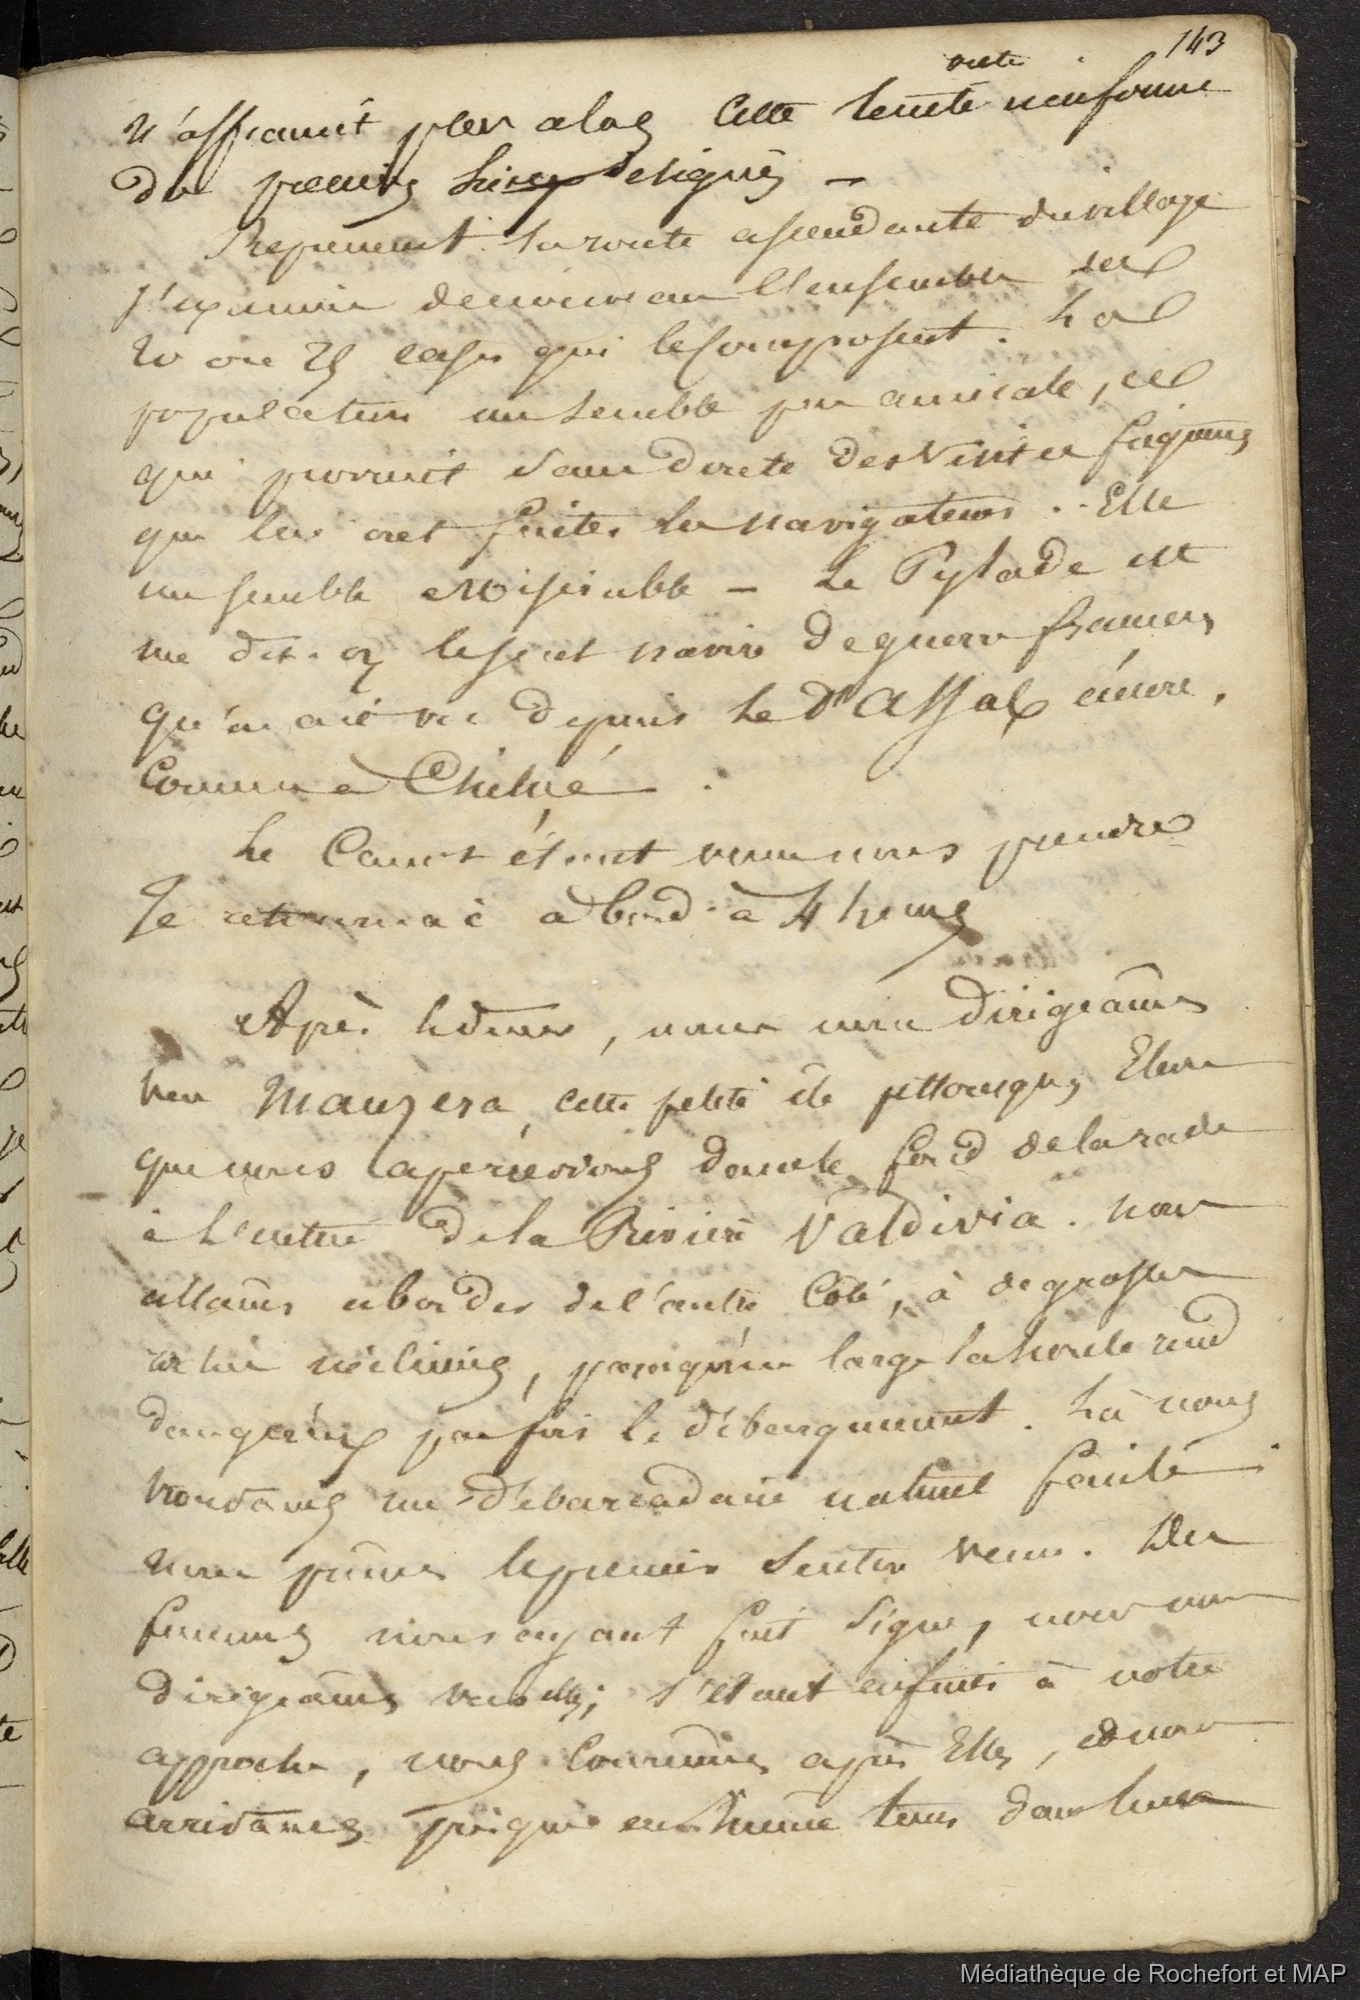 143
verte
n'offrait plus alors cette teinte uniforme
du premier désignés —
Reprenant la route ascendante du village
j'examine de nouveau l'ensemble des
20 ou 25 cases qui le composent. La
population me semble peu amicale, ce
qui provient sans doute des visites fréquentes
que leur ont faites les navigateurs. Elle
me semble misérable — Le Pylade est
me dit-on le seul navire de guerre français
qu'on ait vu depuis le Dassas
comme
Le Canot étant venu nous prendre
Je retournai à bord à 4 heures
Après le diner, nous nous dirigeâmes
vers Manzera, cette petite île pittoresque
que nous apercevions dans le fond de la rade
à l'entrée de la Rivière Valdivia. nous
allâmes aborder de l'autre côté, à de grosses
roches inclinées, parcequ'au large la houle rend
dangereux parfois le débarquement. Là nous
trouvâmes un débarcadaire naturel facile
nous prîmes le premier sentier venu. Des
femmes nous ayant fait signe, nous nous
dirigeâmes vers elles; s'étant enfuies à notre
approche, nous courûmes après Elles, et nous
arrivâmes presque en même tems dans leur
Médiathèque de Rochefort et MAP